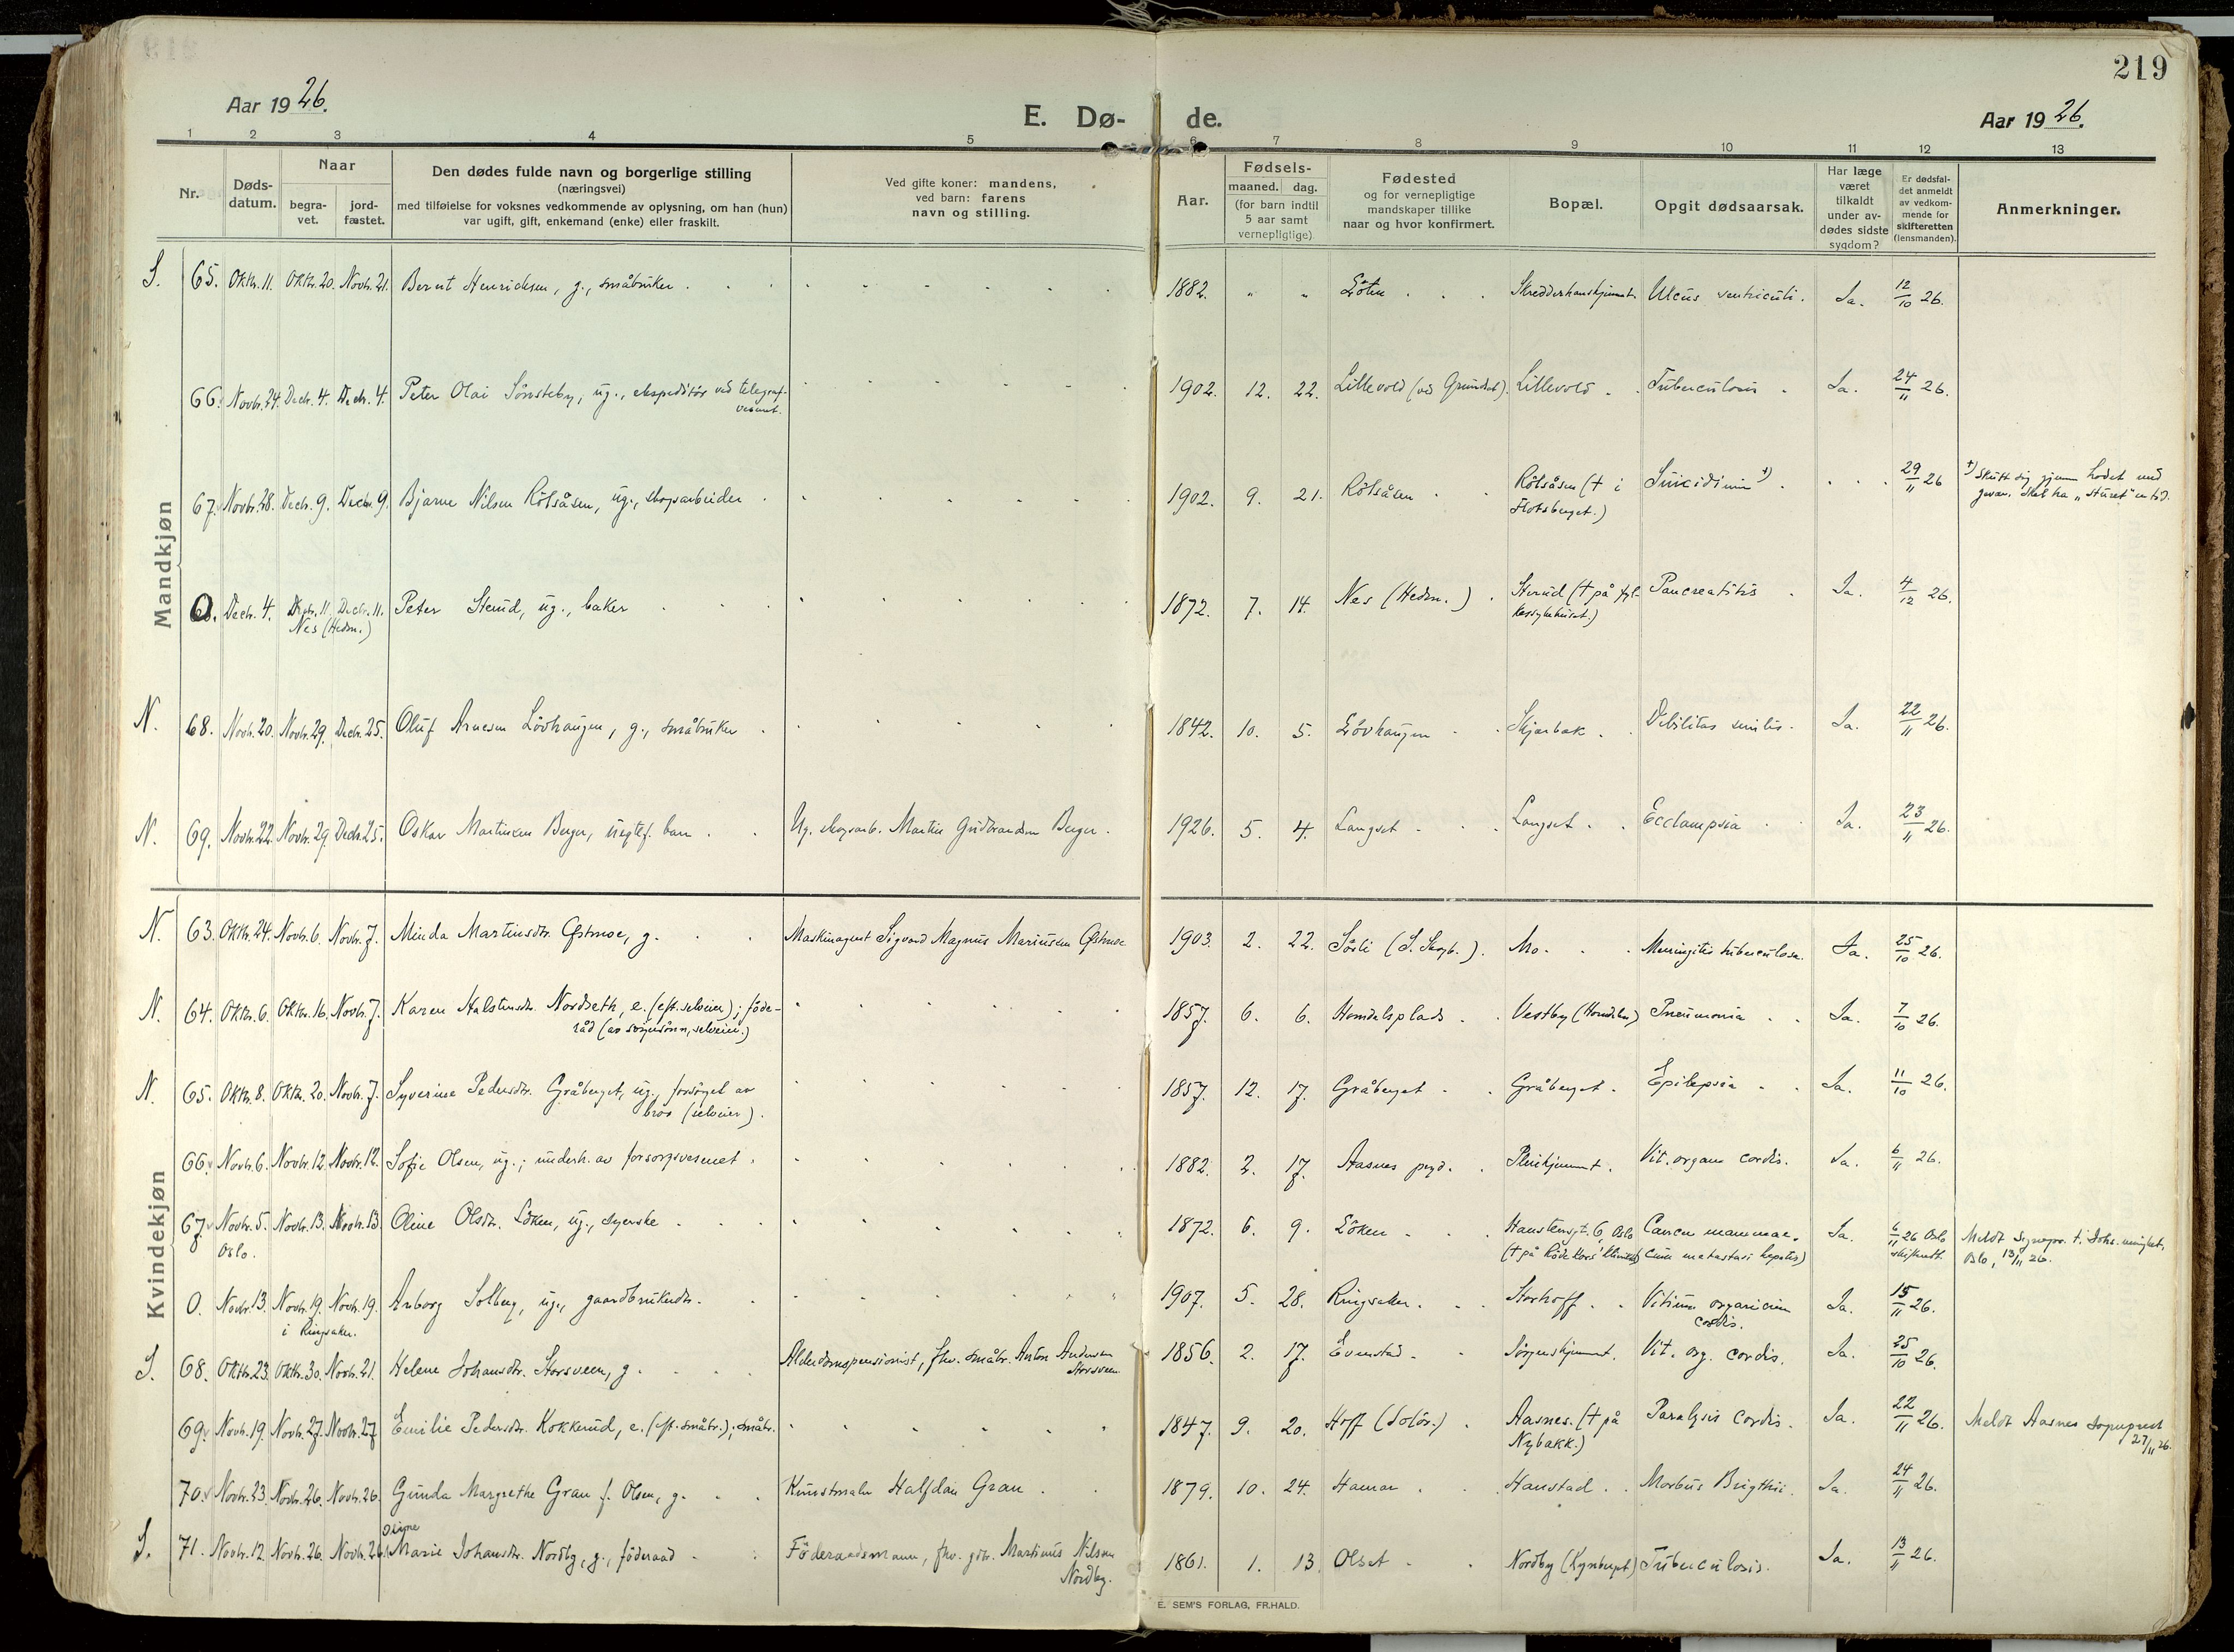 219
Aar 19 26.
E. Dø- de.
Aar 19 26.
1 2 3 4 5 6 7 8 9 10 11 12 13
Nr.
Døds-
datum.
Naar
begra-
vet.
jord-
fæstet.
Den dødes fulde navn og borgerlige stilling
(næringsvei)
med tilføielse for voksnes vedkommende av oplysning, om han (hun)
var ugift, gift, enkemand (enke) eller fraskilt.
Ved gifte koner: mandens,
ved barn: farens
navn og stilling.
Aar.
Fødsels-
maaned. dag.
(for barn indtil
5 aar samt
vernepligtige)
Fødested
og for vernepligtige
mandskaper tillike
naar og hvor konfirmert.
Bopæl.
Opgit dødsaarsak.
Har læge
været
tilkaldt
under av-
dødes sidste
sygdom?
Er dødsfal-
det anmeldt
av vedkom-
mende for
skifteretten
(lensmanden).
Anmerkninger.
Mandkjøn
S. 65. Oktbr. 11. Oktbr. 20. Novbr. 21. Bernt Henriksen, g., småbruker 1882. " " Løten Ulcus ventriculi. Ja. 12/10 26.
66. Novbr. 24. Decbr. 4. Decbr. 4. Peter Olai Sönsteby, ug., ekspeditør ved telegraf-
vesenet. 1902. 12. 22. Lillevold (ved Grundset). Lillevold Tuberculosis Ja. 24/11 26.
67. Novbr. 28. Decbr. 9. Decbr. 9. Bjarne Nilsen Rölsåsen, ug., skogsarbeider 1902. 9. 21. Rölsåsen Rölsåsen († i Suicidium †) 29/11 26 †) Skutt sig gjennem hodet med
gevær. Skal ha "sturet" en tid.
68. Decbr. 4. Decbr. 11. Decbr. 11. Peter Sterud, ug., baker 1872. 7. 14. Nes (Hedm.) Sterud († på fyl- Pancreatitis Ja. 4/12 26.
Nes (Hedm.) kessykehuset.)
N. 68. Novbr. 20. Novbr. 29. Decbr. 25. Oluf Arnesen Lövhaugen, g., småbruker 1842. 10. 5. Lövhaugen Skjærbak Debilitas senilis. Ja. 22/11 26.
N. 69. Novbr. 22. Novbr. 29. Decbr. 25. Oskar Martinsen Berger, uegtef. barn Ug. skogsarb. Martin Gudbrandsen Berger. 1926. 5. 4. Langset Langset Ecclampsia Ja. 23/11 26.
Kvindekjøn
N. 63. Oktbr. 24. Novbr. 6. Novbr. 7. Minda Martinsdtr. Østmoe, g. Maskinagent Sigvard Magnus Mariusen Østmoe 1903. 2. 22. Sörli Mo. Meningitis tuberculosa. Ja. 25/10 26.
N. 64. Oktbr. 6. Oktbr. 16. Novbr. 7. Karen Halstensdtr. Nordseth, e. (eft. selveier); föde-
råd (av svigersönn, selveier.) 1857. 6. 6. Homdalsplads Vestby Pneumonia Ja. 7/10 26.
N. 65. Oktbr. 8. Oktbr. 20. Novbr. 7. Syverine Pedersdtr. Gråberget, ug., forsörget av
bror (selveier). 1857. 12. 17. Gråberget Gråberget Epilepsia Ja. 11/10 26.
66. Novbr. 6. Novbr. 12. Novbr. 12. Sofie Olsen, ug.; underh. av forsorgsvesenet. 1882. 2. 17. Aasnes prgd. Vit. organ. cordis. Ja. 6/11 26.
67. Novbr. 5. Novbr. 13. Novbr. 13. Oline Olsdtr. Löken, ug., syerske 1872. 6. 9. Löken Hansteensgt. 6, Oslo Cancer mammae. Ja. 6/11 26 Oslo
Oslo. († på Röde Kors' Klinikk) (cum metastasi hepatis) skifterett. Oslo, 13/11 26.
0. Novbr. 13. Novbr. 19. Novbr. 19. Anborg Solberg, ug., gaardbrukerdtr. 1907. 5. 28. Ringsaker. Storhoff Vitium organicum Ja. 15/11 26.
i Ringsaker. cordis.
S. 68. Oktbr. 23. Oktbr. 30. Novbr. 21. Helene Johansdtr. Storsveen, g. Alderdomspensionist, fhv. småbr. Anton Andersen
Storsveen. 1856. 2. 17. Evenstad Vit. org. cordis. Ja. 25/10 26.
69. Novbr. 19. Novbr. 27. Novbr. 27 Emilie Pedersdtr. Kokkerud, e. (eft. småbr.); småbr. 1847. 9. 20. Hoff (Solör.) Aasnes. († på Paralysis cordis. Ja. 22/11 26. Meldt Aasnes sogneprest
Nybakk.) 27/11 26.
70. Novbr. 23. Novbr. 26. Novbr. 26. Gunda Margrethe Gran f. Olsen, g. Kunstmaler Halfdan Gran 1879. 10. 24. Hamar Hanstad Morbus Brigthii. Ja. 24/11 26.
S. 71. Novbr. 12. Novbr. 26. Novbr. 26. Marie Johansdtr. Nordby, g., föderaad Föderaadsmann, fhv. gbr. Martinus Nilsen
Nordby. 1861. 1. 13. Olset Nordby (Kynberget) Tuberculosis. Ja. 13/11 26.
E. SEM'S FORLAG, FR.HALD.